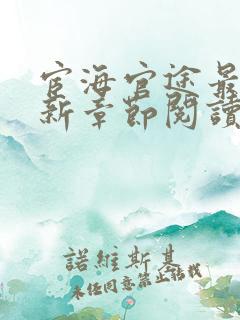 宦海官途最
新章節閱讀
諾維斯基
未經同意禁止轉載